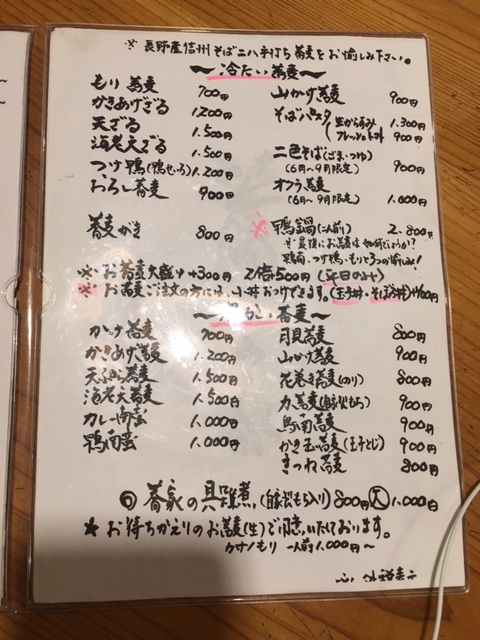 ※ 長野産信州そば二八手打ち蕎麦をお愉しみ下さい。
〜冷たい蕎麦〜
もり蕎麦 700円
かきあげざる 1,200円
天ざる 1,500円
海老天ざる 1,500円
つけ鴨(鴨せいろ) 1,200円
おろし蕎麦 900円
蕎麦がき 800円
山かけ蕎麦 900円
そばパスタ 生からすみ 1,300円
フレッシュトマト 900円
二色そば(ごま・つゆ) 900円
(6月〜9月限定)
オクラ蕎麦 1,000円
(6月〜9月限定)
※鴨鍋(二人前) 2,800円
※最後にお蕎麦は如何でしょうか?
鴨南・つけ鴨・もりと3つの愉しみ!
※お蕎麦大盛り+300円 2倍500円 (平日のみ)
※お蕎麦ご注文の方には、小丼おつけできます。(玉子丼・そぼろ丼)+100円
〜温かい蕎麦〜
かけ蕎麦 700円
かきあげ蕎麦 1,200円
天ぷら蕎麦 1,500円
海老天蕎麦 1,500円
カレー南蛮 1,000円
鴨南蛮 1,000円
月見蕎麦 800円
山かけ蕎麦 900円
花巻き蕎麦(のり) 800円
力蕎麦(自家製もち) 900円
鳥南蕎麦 900円
かき玉蕎麦(玉子とじ) 900円
きつね蕎麦 800円
蕎家の具雑煮(自家製もち入り) 800円 大 1,000円
★お持ちかえりのお蕎麦(生)ご用意いたしております。
一人前1,000円〜